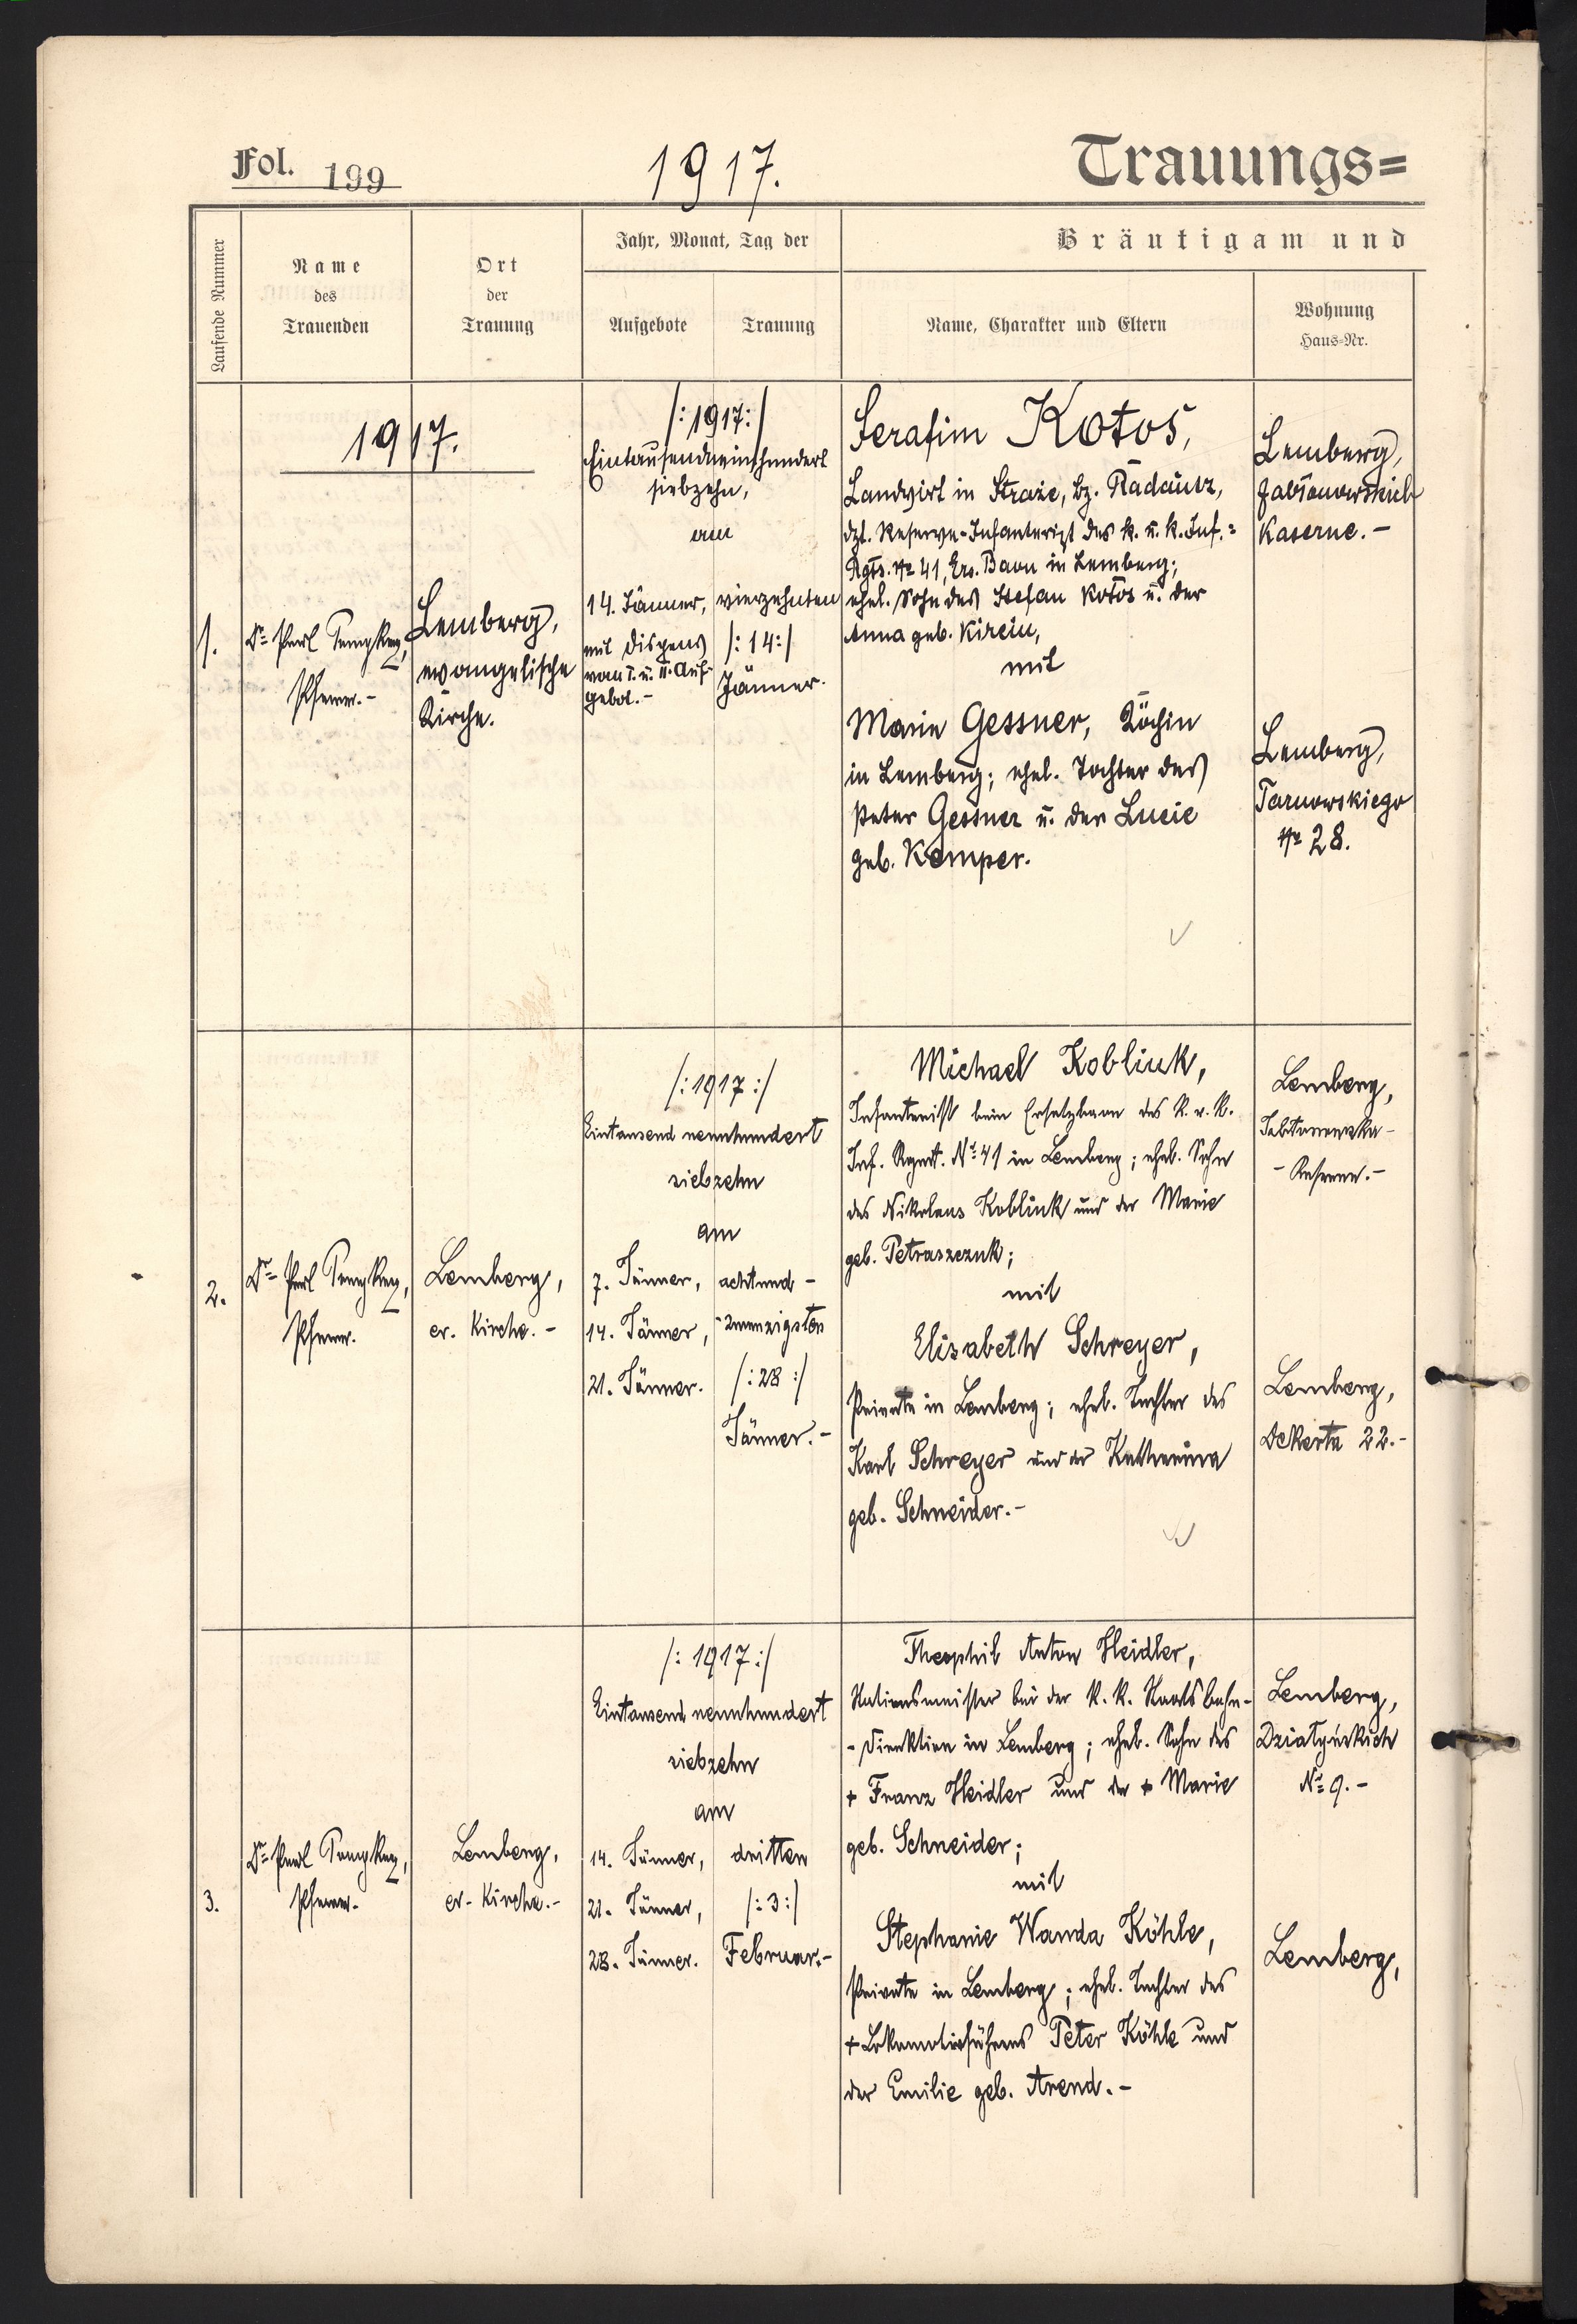 Fol. 199
1917.
Trauungs=
Laufende Nummer
Name
des
Trauenden
Ort
der
Trauung
Jahr, Monat, Tag der
Aufgebote
Trauung
Bräutigam und
Name, Charakter und Eltern
Wohnung
Haus-Nr.
1917.
1.
Dr. Paul
Pfarrer.-
Lemberg,
evangelische
Kirche.
/:1917:/
Eintausendneunhundert
siebzehn,
am
14. Jänner,
mit Dispens
vom I. u. II. Auf-
gebot.-
vierzehnten
/:14:/
Jänner.
Serafim Kotos,
Landwirt in Straże, bz. Radautz,
dzt. Reserve-Infanterist des k. u. k. Inf.=
Rgts. No 41, Ers. Baon in Lemberg;
ehel. Sohn des Stefan Kotos u. der
Anna geb. Kirein,
mit
Marie Gessner, Köchin
in Lemberg; ehel. Tochter des
Peter Gessner u. der Lucie
geb. Kemper.
Lemberg,
Kaserne.-
Lemberg,
Tarnowskiego
No 28.
2.
Dr. Paul
Pfarrer.
Lemberg,
ev. Kirche.-
/:1917:/
Eintausend neunhundert
siebzehn
am
7. Jänner,
14. Jänner,
21. Jänner.
achtund-
-zwanzigsten
/:28:/
Jänner.-
Michael Kobliuk,
Infanterist beim Ersatzbaon des k. u. k.
Inf. Regmt. No 41 in Lemberg; ehel. Sohn
des Nikolaus Kobliuk und der Marie
geb. Petraszczuk;
mit
Elisabeth Schreyer,
Private in Lemberg; ehel. Tochter des
Karl Schreyer und der Katharina
geb. Schneider.-
Lemberg,
-Kaserne.-
Lemberg,
Dekerta 22.-
3.
Dr. Paul
Pfarrer.
Lemberg,
ev. Kirche.-
/:1917:/
Eintausend neunhundert
siebzehn
am
14. Jänner,
21. Jänner,
28. Jänner.
dritten
/:3:/
Februar.-
Theophil Anton Heidler,
Stationsmeister bei der k. k. Staatsbahn-
-Direktion in Lemberg; ehel. Sohn des
+ Franz Heidler und der + Marie
geb. Schneider;
mit
Stephanie Wanda Köhle,
Private in Lemberg; ehel. Tochter des
+ Lokomotivführers Peter Köhle und
der Emilie geb. Arend.-
Lemberg,
Dziatyńskich
No 9.-
Lemberg,